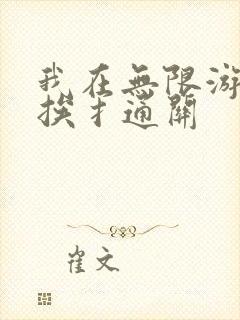 我在無限游
挨扌通關
崔文